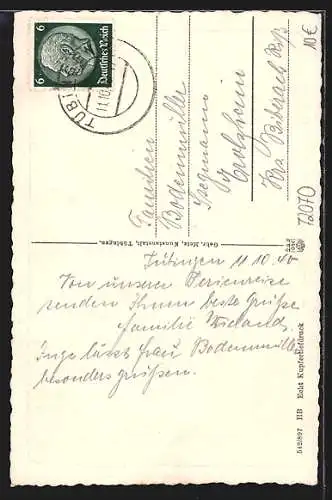 Tübingen 11.10.40
Von unserer Ferienreise
senden Ihnen beste Grüße
Familie Wieland.
Inge lässt Frau Bodenmüller
besonders grüßen.
Bodenmüller
Krs Biberach Riß
6 6
Deutsches Reich
TÜBI
11.10
Gebr. Metz, Kunstanstalt, Tübingen.
542/897 IIB Echt Kupfertiefdruck
72070
10€